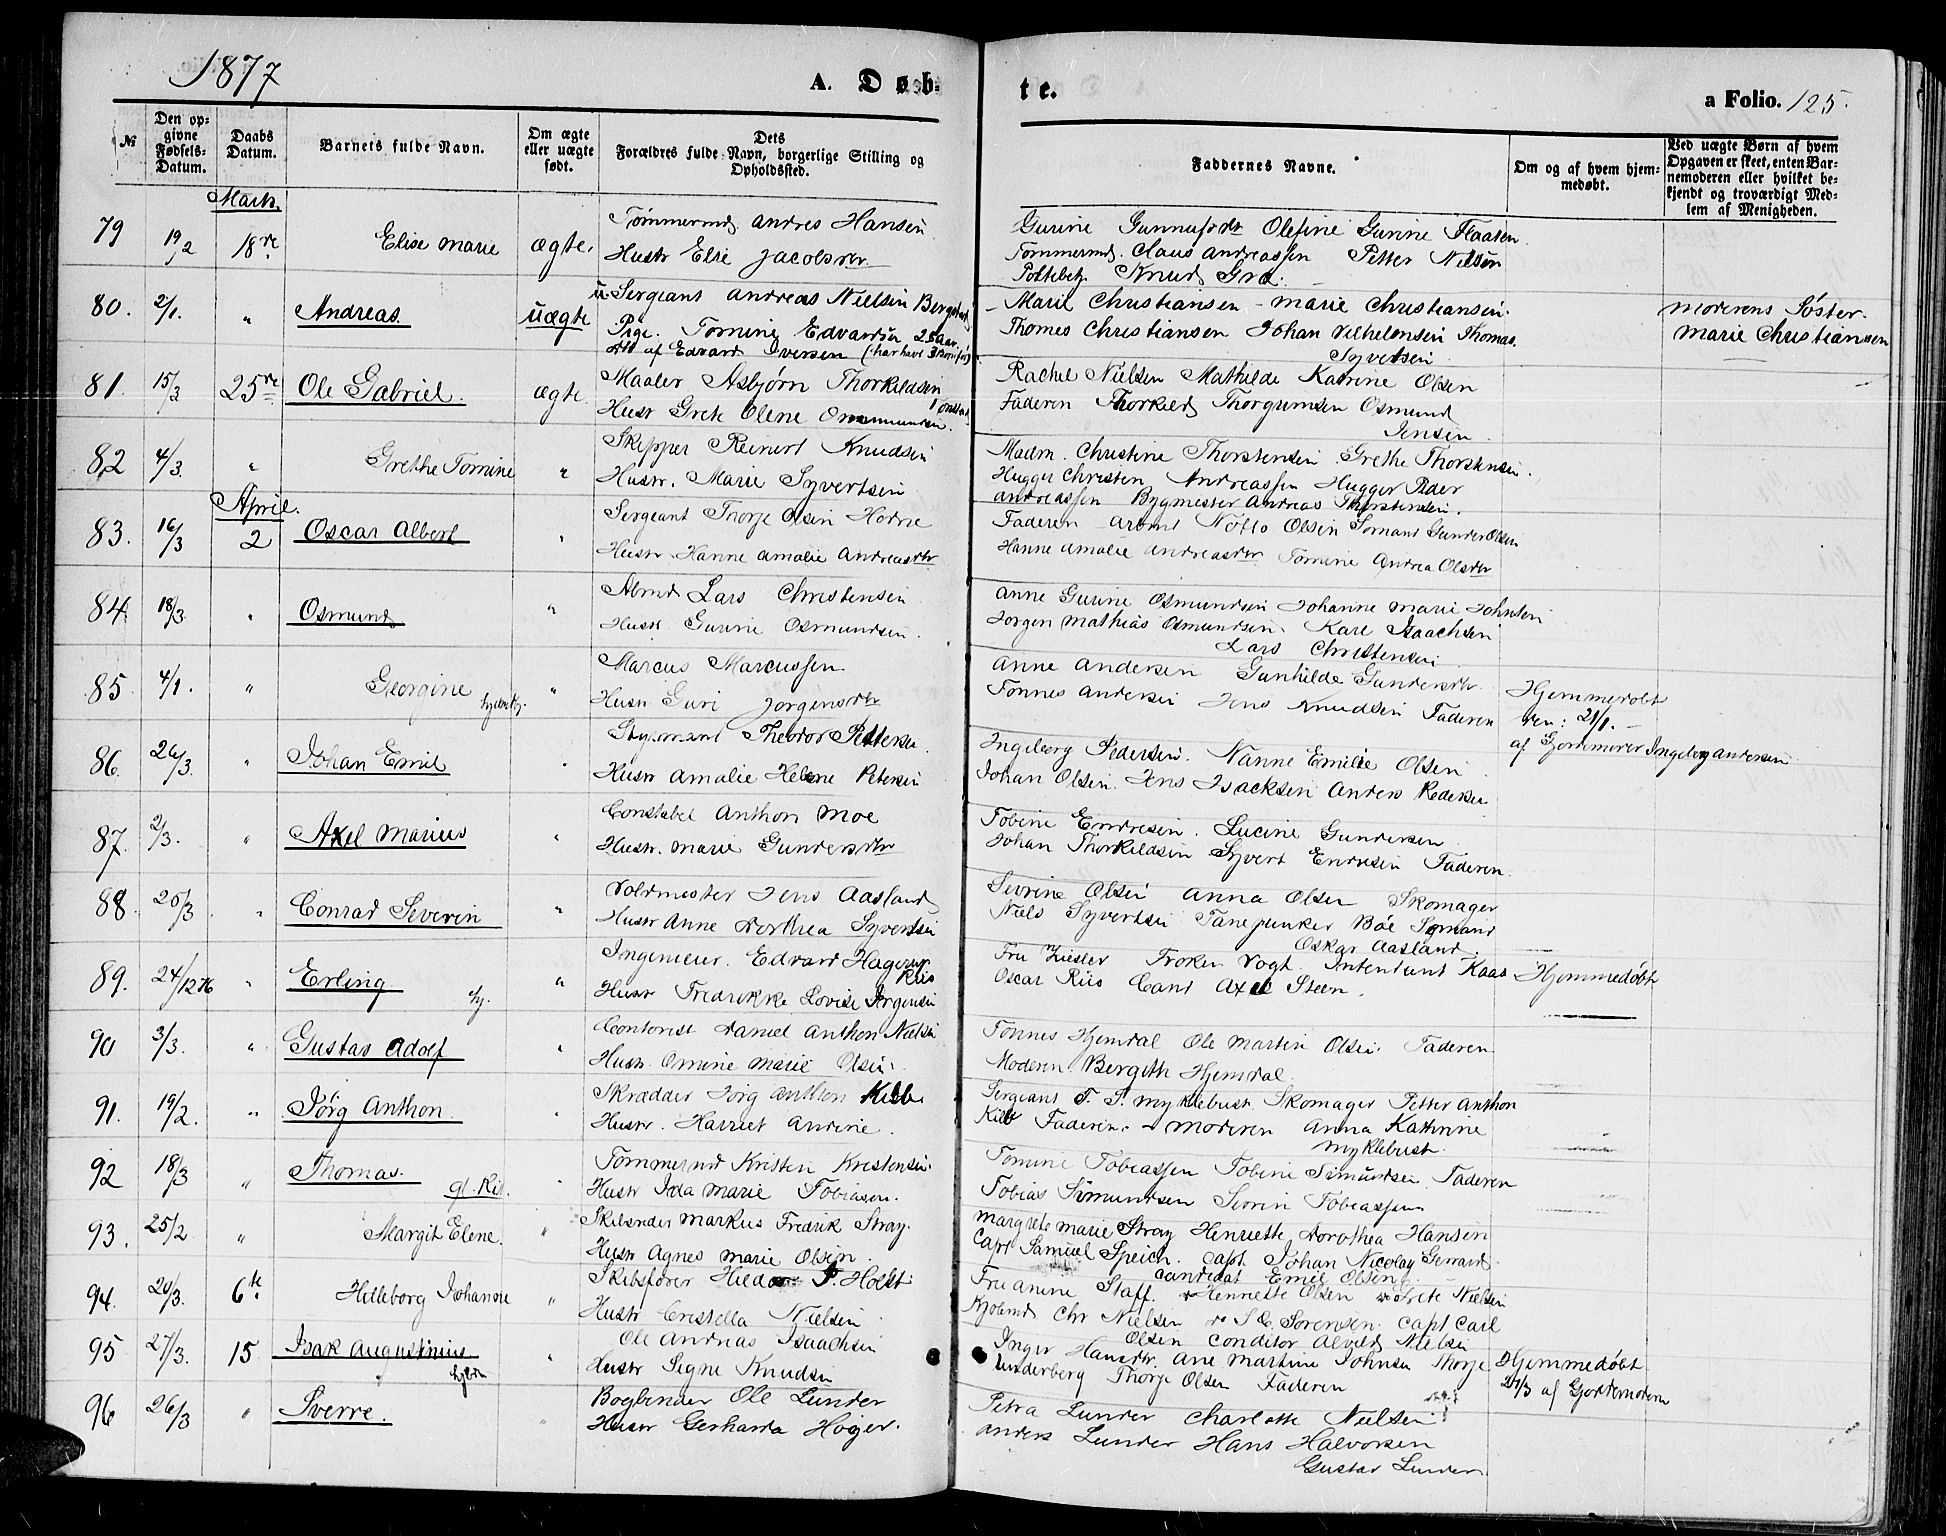 1877
A. Døb-
te.
a Folio. 125.
№
Den op-
givne
Fødsels-
Datum.
Daabs
Datum.
Barnets fulde Navn.
Om ægte
eller uægte
født.
Dets
Forældres fulde Navn, borgerlige Stilling og
Opholdssted.
Faddernes Navne.
Om og af hvem hjem-
medøbt.
Ved uægte Børn af hvem
Opgaven er skeet, enten Bar-
nemoderen eller hvilket be-
kjendt og troværdigt Med-
lem af Menigheden.
Marts.
79 19/2 18de Elise Marie ægte. Tømmermd. Andres Hansen
Hustr Else Jacobsdtr
Gurine Gunnufsdtr Olefine Gurine Flaaten
Tømmermd. Claus Andreassen Petter Nielsen
Politibetj. Knud Gra.
80. 2/1. " Andreas. uægte u. Sergeant Andreas Nielsen Bergstad
Pige. Tomine Edvardsen 25 Aar
af Edvard Iversen (har havt 3 Børn før)
Marie Christiansen - Marie Christiansen.
Thomes Christiansen Johan Vilhelmsen Thomas
Syvertsen
Moderens Søster.
Marie Christiansen
81. 15/3 25de Ole Gabriel. ægte Maaler Asbjørn Thorkildsen
Tonstad
Hustr Grete Olene Ommundsen.
Rachel Nielsen Mathilde Katrine Olsen
Faderen Thorkild Thorgrimsen Osmund
Jensen
82 4/3. " Grethe Tomine " Skipper Reinert Knudsen
Hustr. Marie Syvertsen
Madm. Christine Thorstensen Grethe Thorstensen.
Hugger Christen Andreassen Hugger Peder
Andreassen Bygmester Andreas Thorstensen.
April.
83. 16/3 2 Oscar Albert " Sergeant Thorje Olsen Horne
Hustr Hanne Amalie Andreasdtr
Faderen Notto Olsen Sømand Gunder Olsen
Hanne Amalie Andreasdtr Tomine Andrea Olsdtr
84. 18/3. " Osmund " Lars Christensen
Hustr Gurine Osmundsen.
Anne Gurine Osmundsen Johanne Marie Johnsen
Jørgen Mathias Osmundsen. Kari Isaachsen
Lars Christensen
85. 4/1. " Georgine " Marcus Marcussen
Hustr Guri Jørgensdtr
Anne Andersen Gunhilde Gundersdtr.
Tønnes Andersen Jens Knudsen Faderen
Hjemmedøbt
den: 21/1. -
af Gjordemoder Ingeborg Andersen
86. 26/3. " Johan Emil " Styrmand Theodor Pettersen.
Hustr Amalie Helene Petersen
Ingeborg Pedersen. Nanne Emilie Olsen
Johan Olsen. Jens Isacksen Anders Pedersen
87. 2/3. " Axel Marius " Constabel Anthon Moe
Hustr. Marie Gundersdtr
Tobine Endresen. Lucine Gundersen
Johan Thorkildsen Syvert Endresen Faderen
88. 25/3 " Conrad Severin " Voldmester Jens Aasland
Hustr Anne Dorthea Syvertsen
Sivrine Olsen Anna Olsen Skomager
Niels Syvertsen Bøe Sømand
Oskar Aasland.
89. 24/12 76 " Erling. hj. " Ingenieur. Edvard Hagerup
Riis
Hustr Fredrikke Lovise Jørgensen
Fru Ziesler Frøken Vogt. Intendant Kaas
Oscar Riis Cand Axel Steen.
Hjemmedøbt
90 3/3. " Gustav Adolf " Contorist Daniel Anthon Nielsen
Hustr. Omine Marie Olsen.
Tønnes Hjemdal Ole Martin Olsen. Faderen
Moderen Bergith Hjemdal.
91. 19/2. " Jørg Anthon. " Skrædder Jørg Anthon Kille
Hustr. Harriet Andine.
Sergeant T. S. Myklebust. Skomager Petter Anthon
Kille Faderen. - Moderen Anna Kathrine
Myklebust.
92 18/3 " Thomas. " Tømmermd Kristen Kristensen.
Hustr Ida Marie Tobiasen.
Tomine Tobiassen Tobine Simundsen Faderen
Tobias Simundsen Severin Tobiassen
93. 25/2 " Margit Elene. " Skibsreder Markus Fredrik Stray.
Hustr Agnes Marie Olsen.
Margrete Marie Stray Henriette Dorothea Hansen
Capt Samuel Speich. Capt. Johan Nicolay Gerrard.
Candidat Emil Olsen
94. 20/3. 6te Hilleborg Johanne " Skibsfører Hildor P. Holst
Hustr Cristella Nielsen
Fru Anine Staff. Henriette Olsen Grete Nielsen
Kjøbmd Chr Nielsen S C. Sørensen. Capt Carl
Olsen Conditor Alvild Nielsen
95 27/3. 15 Isak Augustinius " Ole Andreas Isaachsen
Hustr Signe Knudsen
Inger Hansdtr. Ane Martine Johnsen Thorje
Underberg Thorje Olsen Faderen
Hjemmedøbt
29/3 af Gjordemoderen
96 26/3 " Sverre. " Bogbinder Ole Lunder
Hustr Gerharda Høyer.
Petra Lunder Charlotte Nielsen
Anders Lunder Hans Halvorsen
Gustav Lunder